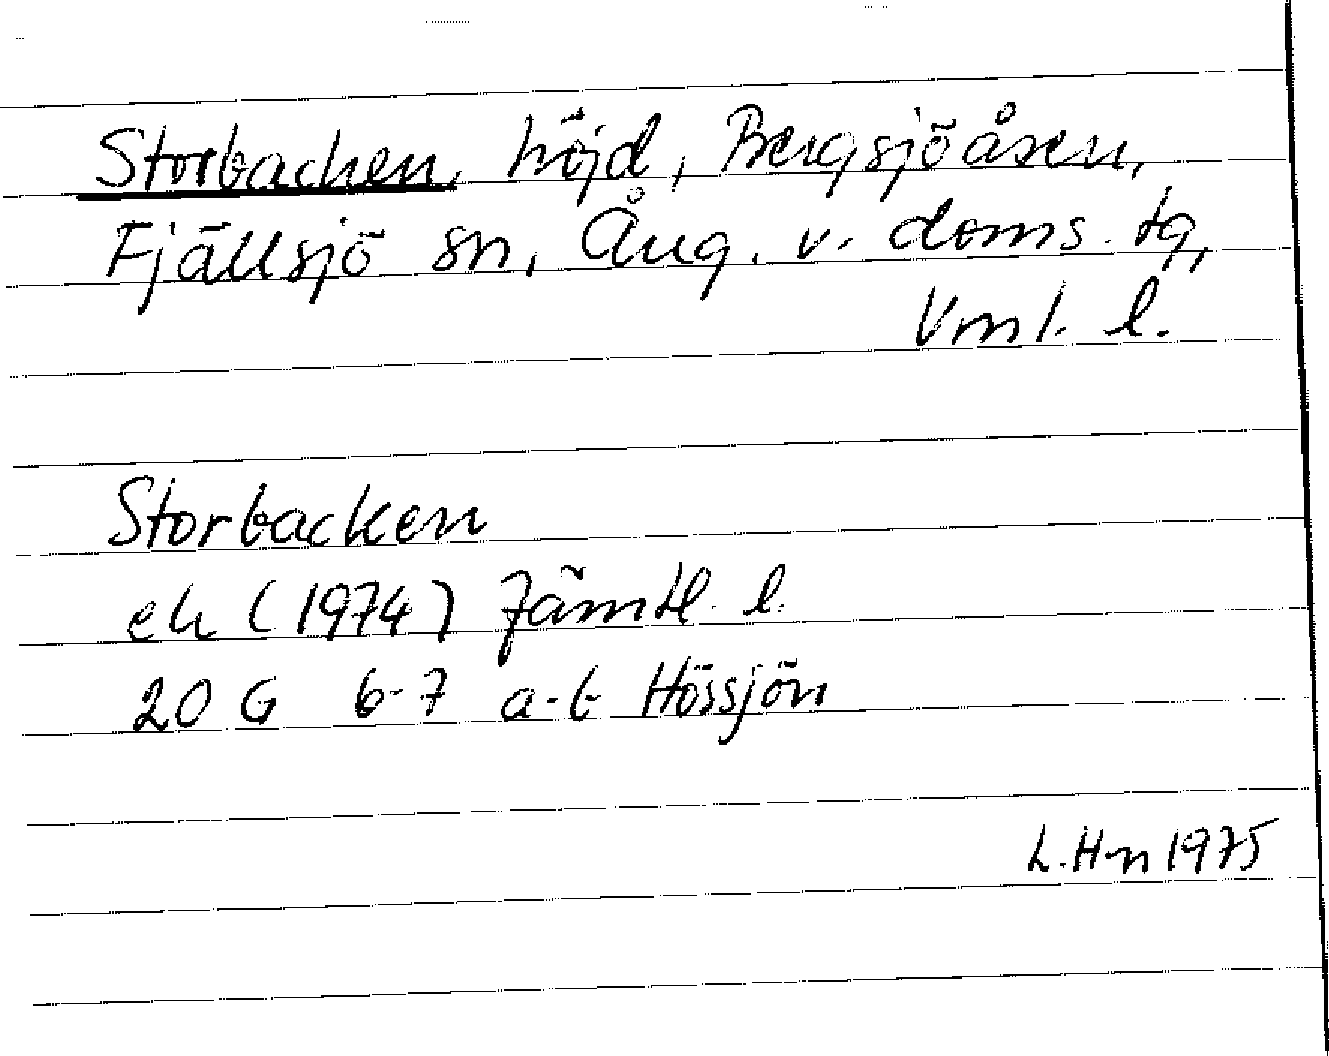 Storbacken, höjd, Bergsjöåsen,
Fjällsjö sn, Ång. v. doms. tg,
Vnl. l.
Storbacken
ek (1974) Jämtl. l.
20 G 6-7 a-b Hössjön
L. H-n 1975